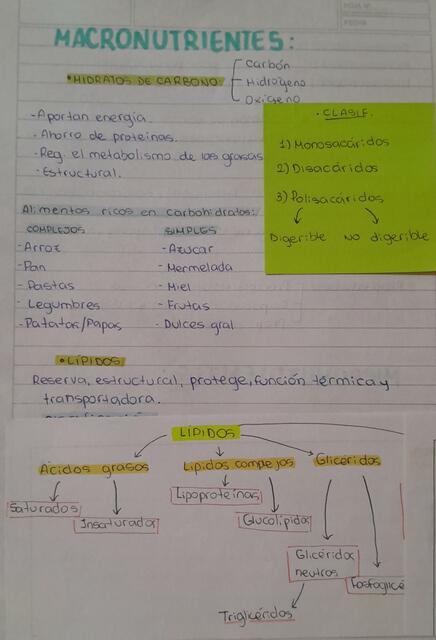 MACRONUTRIENTES:
• HIDRATOS DE CARBONO
Carbón
Hidrógeno
Oxígeno
- Aportan energía.
- Ahorro de proteinas.
- Reg. el metabolismo de las grasas
- Estructural.
• CLASIF.
1) Monosacáridos
2) Disacáridos
3) Polisacáridos
Digerible No digerible
Alimentos ricos en carbohidratos:
COMPLEJOS SIMPLES
- Arroz - Azucar
- Pan - Mermelada
- Pastas - Miel
- Legumbres - Frutas
- Patatas/Papas - Dulces gral
• LÍPIDOS
Reserva, estructural, protege, función térmica y
transportadora.
LÍPIDOS
Ácidos grasos Lípidos complejos Glicéridos
Saturados Lipoproteínas
Insaturados Glucolípidos
Glicéridos
neutros Fosfoglicé
Triglicéridos